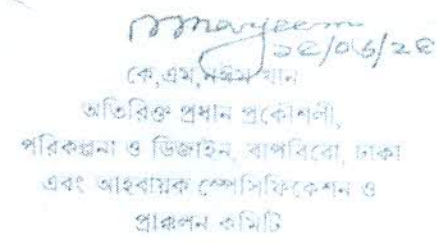 ১৫/০৬/২৫
কে,এম,নঈম খান
অতিরিক্ত প্রধান প্রকৌশলী,
পরিকল্পনা ও ডিজাইন, বাপবিবো, ঢাকা
এবং আহবায়ক স্পেসিফিকেশন ও
প্রাক্কলন কমিটি